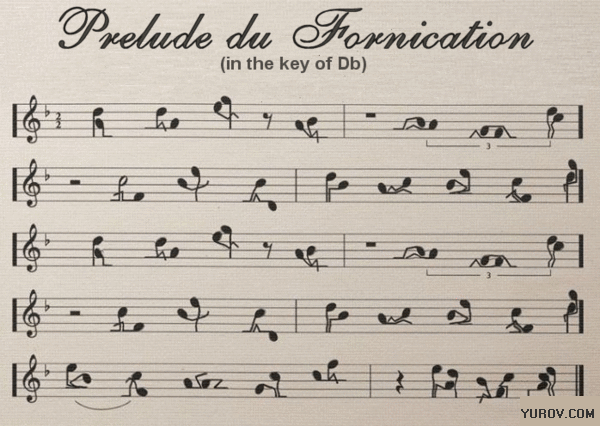 Prelude du Fornication
(in the key of Db)
2
2
3
3
YUROV.COM